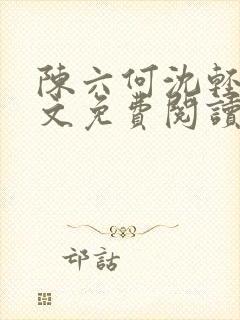 陳六何沈輕
文免費閱讀
邙話